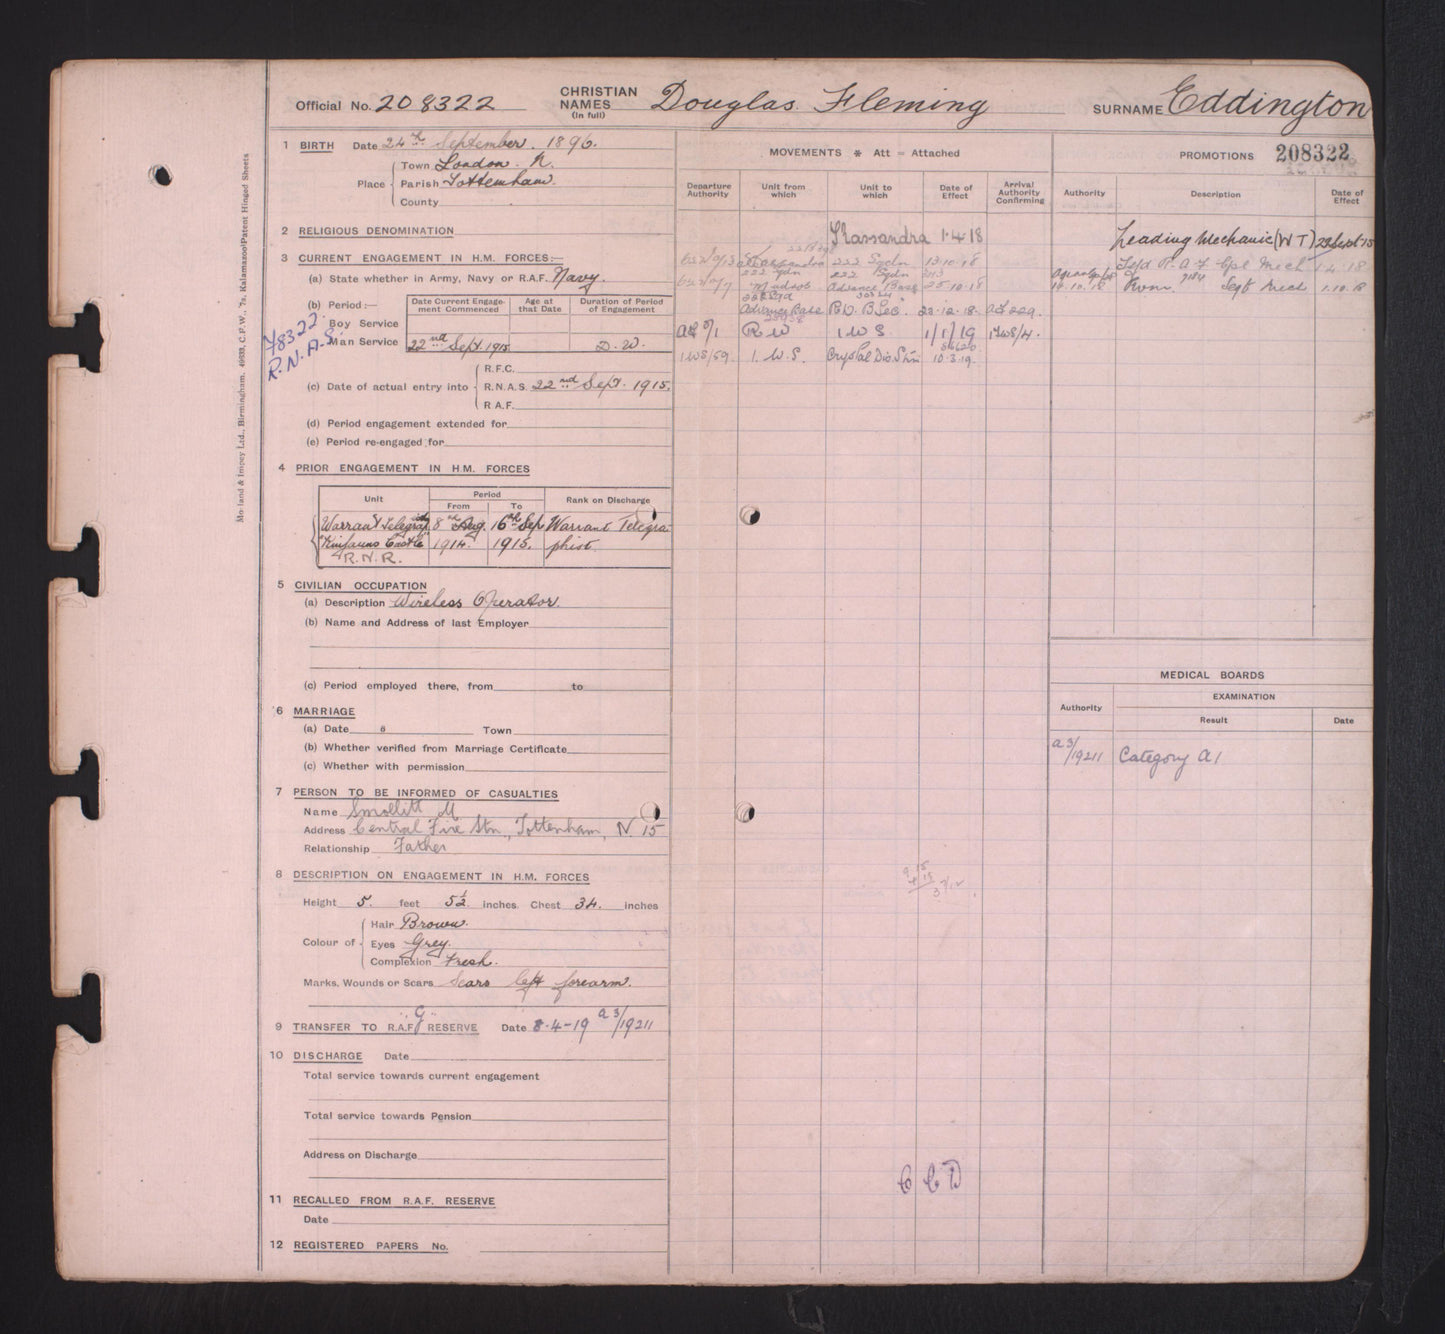 Official No. 208322 CHRISTIAN NAMES (In full) Douglas Fleming SURNAME Eddington
1 BIRTH Date 24th September. 1896.
Place Town London. N.
Parish Tottenham.
County
2 RELIGIOUS DENOMINATION
3 CURRENT ENGAGEMENT IN H.M. FORCES:—
(a) State whether in Army, Navy or R.A.F. Navy.
(b) Period:—
Date Current Engagement Commenced Age at that Date Duration of Period of Engagement
Boy Service
Man Service 22nd Sept. 1915 D.W.
F8322.
R.N.A.S.
(c) Date of actual entry into R.F.C.
R.N.A.S. 22nd Sept. 1915.
R.A.F.
(d) Period engagement extended for
(e) Period re-engaged for
4 PRIOR ENGAGEMENT IN H.M. FORCES
Unit Period From To Rank on Discharge
Warrant Telegraphist 8th Aug. 16th Sep Warrant Telegra
"Kinfauns Castle" 1914. 1915. phist.
R.N.R.
5 CIVILIAN OCCUPATION
(a) Description Wireless Operator.
(b) Name and Address of last Employer
(c) Period employed there, from to
6 MARRIAGE
(a) Date s Town
(b) Whether verified from Marriage Certificate
(c) Whether with permission
7 PERSON TO BE INFORMED OF CASUALTIES
Name M
Address Central Fire Stn., Tottenham, N. 15
Relationship Father
8 DESCRIPTION ON ENGAGEMENT IN H.M. FORCES
Height 5. feet 5½ inches. Chest 34. inches
Colour of Hair Brown.
Eyes Grey.
Complexion Fresh.
Marks, Wounds or Scars Scars left forearm.
9 TRANSFER TO R.A.F. "G" RESERVE Date 8-4-19 a3/19211
10 DISCHARGE Date
Total service towards current engagement
Total service towards Pension
Address on Discharge
11 RECALLED FROM R.A.F. RESERVE
Date
12 REGISTERED PAPERS No.
Morland & Impey Ltd., Birmingham. 49933, C.F.W., 7a. Kalamazoo Patent Hinged Sheets
MOVEMENTS * Att = Attached
Departure Authority Unit from which Unit to which Date of Effect Arrival Authority Confirming
Kassandra 1·4·18
222 Sqdn 13·10·18
222 Sqdn 222 Sqdn
Mudros Advance Base 25·10·18
Advance Base 23·12·18.
R W 1 W S 1/1/19 1WS/4.
1WS/59. 1. W.S. Crystal 10·3·19.
C C D
PROMOTIONS 208322
Authority Description Date of Effect
Leading Mechanic (W T) 22 Sept 15
Tsfd R.A.F Cpl Mech 1·4·18
10.10.18 Prom. Sgt Mech 1.10.18
MEDICAL BOARDS
EXAMINATION
Authority Result Date
a3/19211 Category A1